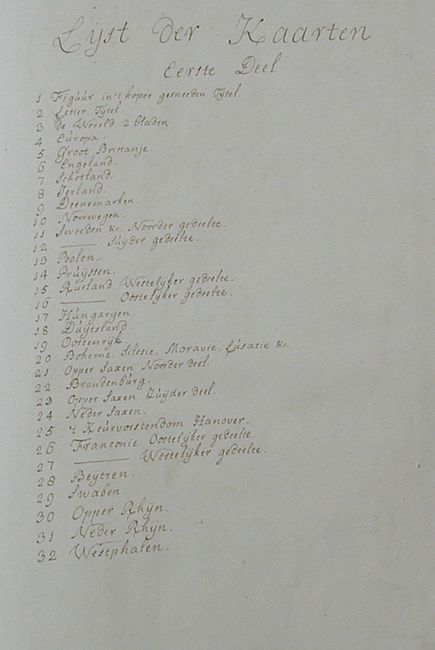 Lÿst der Kaarten
Eerste Deel
1 Figúúr in 't koper gesneeden Tÿtel
2 Letter Tÿtel.
3 de Wereld 2 bladen.
4 Európa
5 Groot Brittanje.
6 Engeland.
7 Schotland.
8 Ierland.
9 Deenemarken.
10 Noorwegen.
11 Sweeden &c. Noorder gedeelte.
12 ——— Súÿder gedeelte.
13 Poolen.
14 Prúÿssen.
15 Rusland Westelÿker gedeelte.
16 ——— Oostelÿker gedeelte.
17 Húngarÿen.
18 Dúÿtsland.
19 Oostenrÿk.
20 Boheme, Silesie, Moravie, Lúsatie &c.
21 Opper Saxen Noorder deel.
22 Brandenbúrg.
23 Opper Saxen Zúÿder deel.
24 Neder Saxen.
25 't Keúrvorstendom Hanover.
26 Franconie Oostelÿker gedeelte.
27 ——— Westelÿker gedeelte.
28 Beÿeren.
29 Swaben.
30 Opper Rhÿn.
31 Neder Rhÿn.
32 Westphalen.